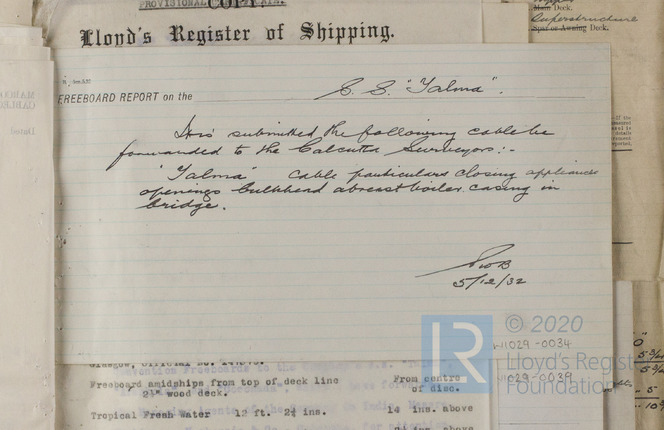 PROVISIONAL
COPY
Lloyd's Register of Shipping.
Deck.
Main Deck.
Superstructure
Spar or Awning Deck.
FREEBOARD REPORT on the S. S. "Talma".
It is submitted the following cable be
forwarded to the Calcutta Surveyors:-
"Talma" Cable particulars closing appliances
openings bulkhead abreast boiler casing in
bridge.
5/12/32
© 2020
LR
Lloyd's Register
Foundation
11029-0034
11029-0039
Freeboard amidships from top of deck line
wood deck.
From centre
of disc.
Tropical Fresh Water 12 ft. 2¼ ins.
14 ins. above